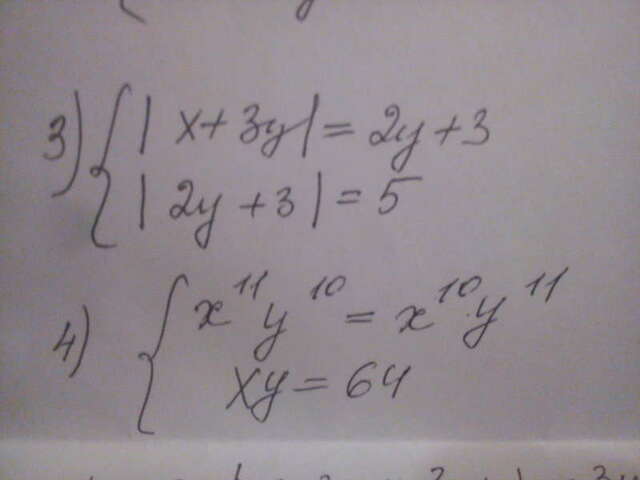 3) { |x+3y|=2y+3
|2y+3|=5
4) { x¹¹y¹⁰=x¹⁰y¹¹
xy=64